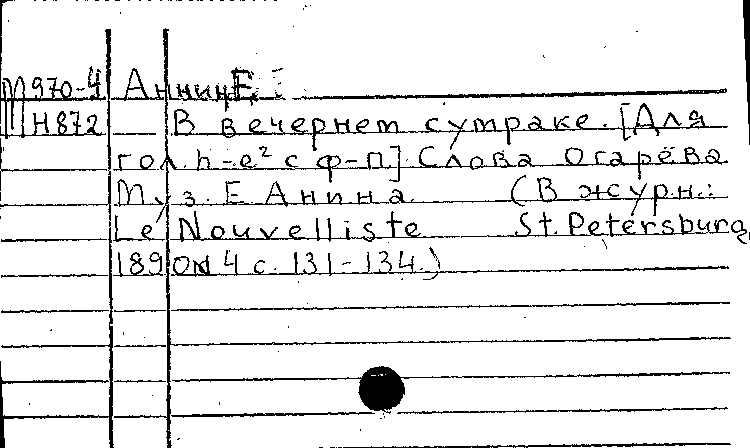 М970-4 Аннин, Е.
Н872 В вечернем сутраке. [Для
гол. h-e² с ф-п.] Слова Огарёва
Муз. Е Анина (В журн.:
Le Nouvelliste St. Petersburg,
1890 №4 с. 131-134.)